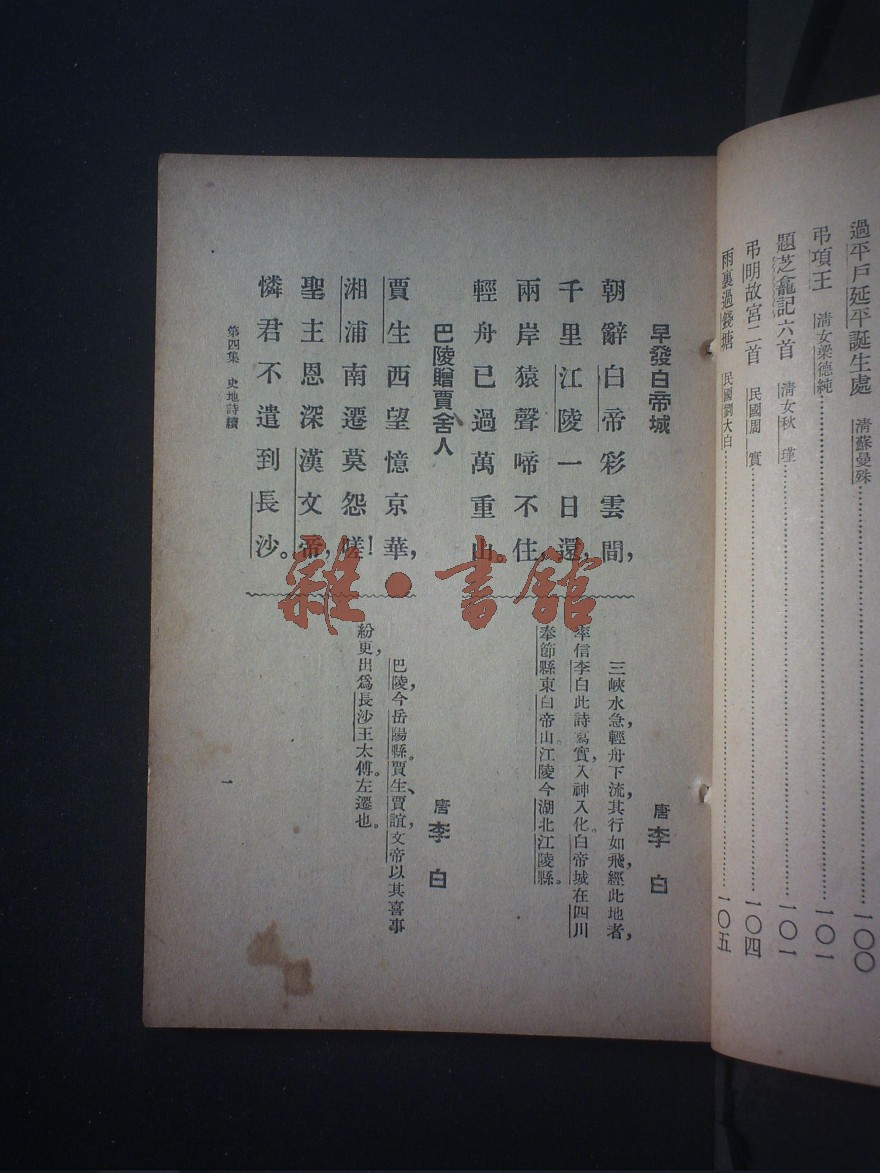 過平戶延平誕生處 清蘇曼殊……一〇〇
弔項王 清女梁德純……一〇一
題芝龕記六首 清女秋瑾……一〇一
弔明故宮二首 民國周實……一〇四
雨裏過錢塘 民國劉大白……一〇五
早發白帝城 唐李白
朝辭白帝彩雲間，
千里江陵一日還，
兩岸猿聲啼不住，
輕舟已過萬重山。
三峽水急，輕舟下流，其行如飛，經此地者，
率信李白此詩寫實，入神入化。白帝城在四川
奉節縣東白帝山。江陵今湖北江陵縣。
巴陵贈賈舍人 唐李白
賈生西望憶京華，
湘浦南遷莫怨嗟！
聖主恩深漢文帝，
憐君不遣到長沙。
巴陵，今岳陽縣。賈生、賈誼，文帝以其喜事
紛更，出爲長沙王太傅。左遷也。
第四集 史地詩續
一
雜·書館